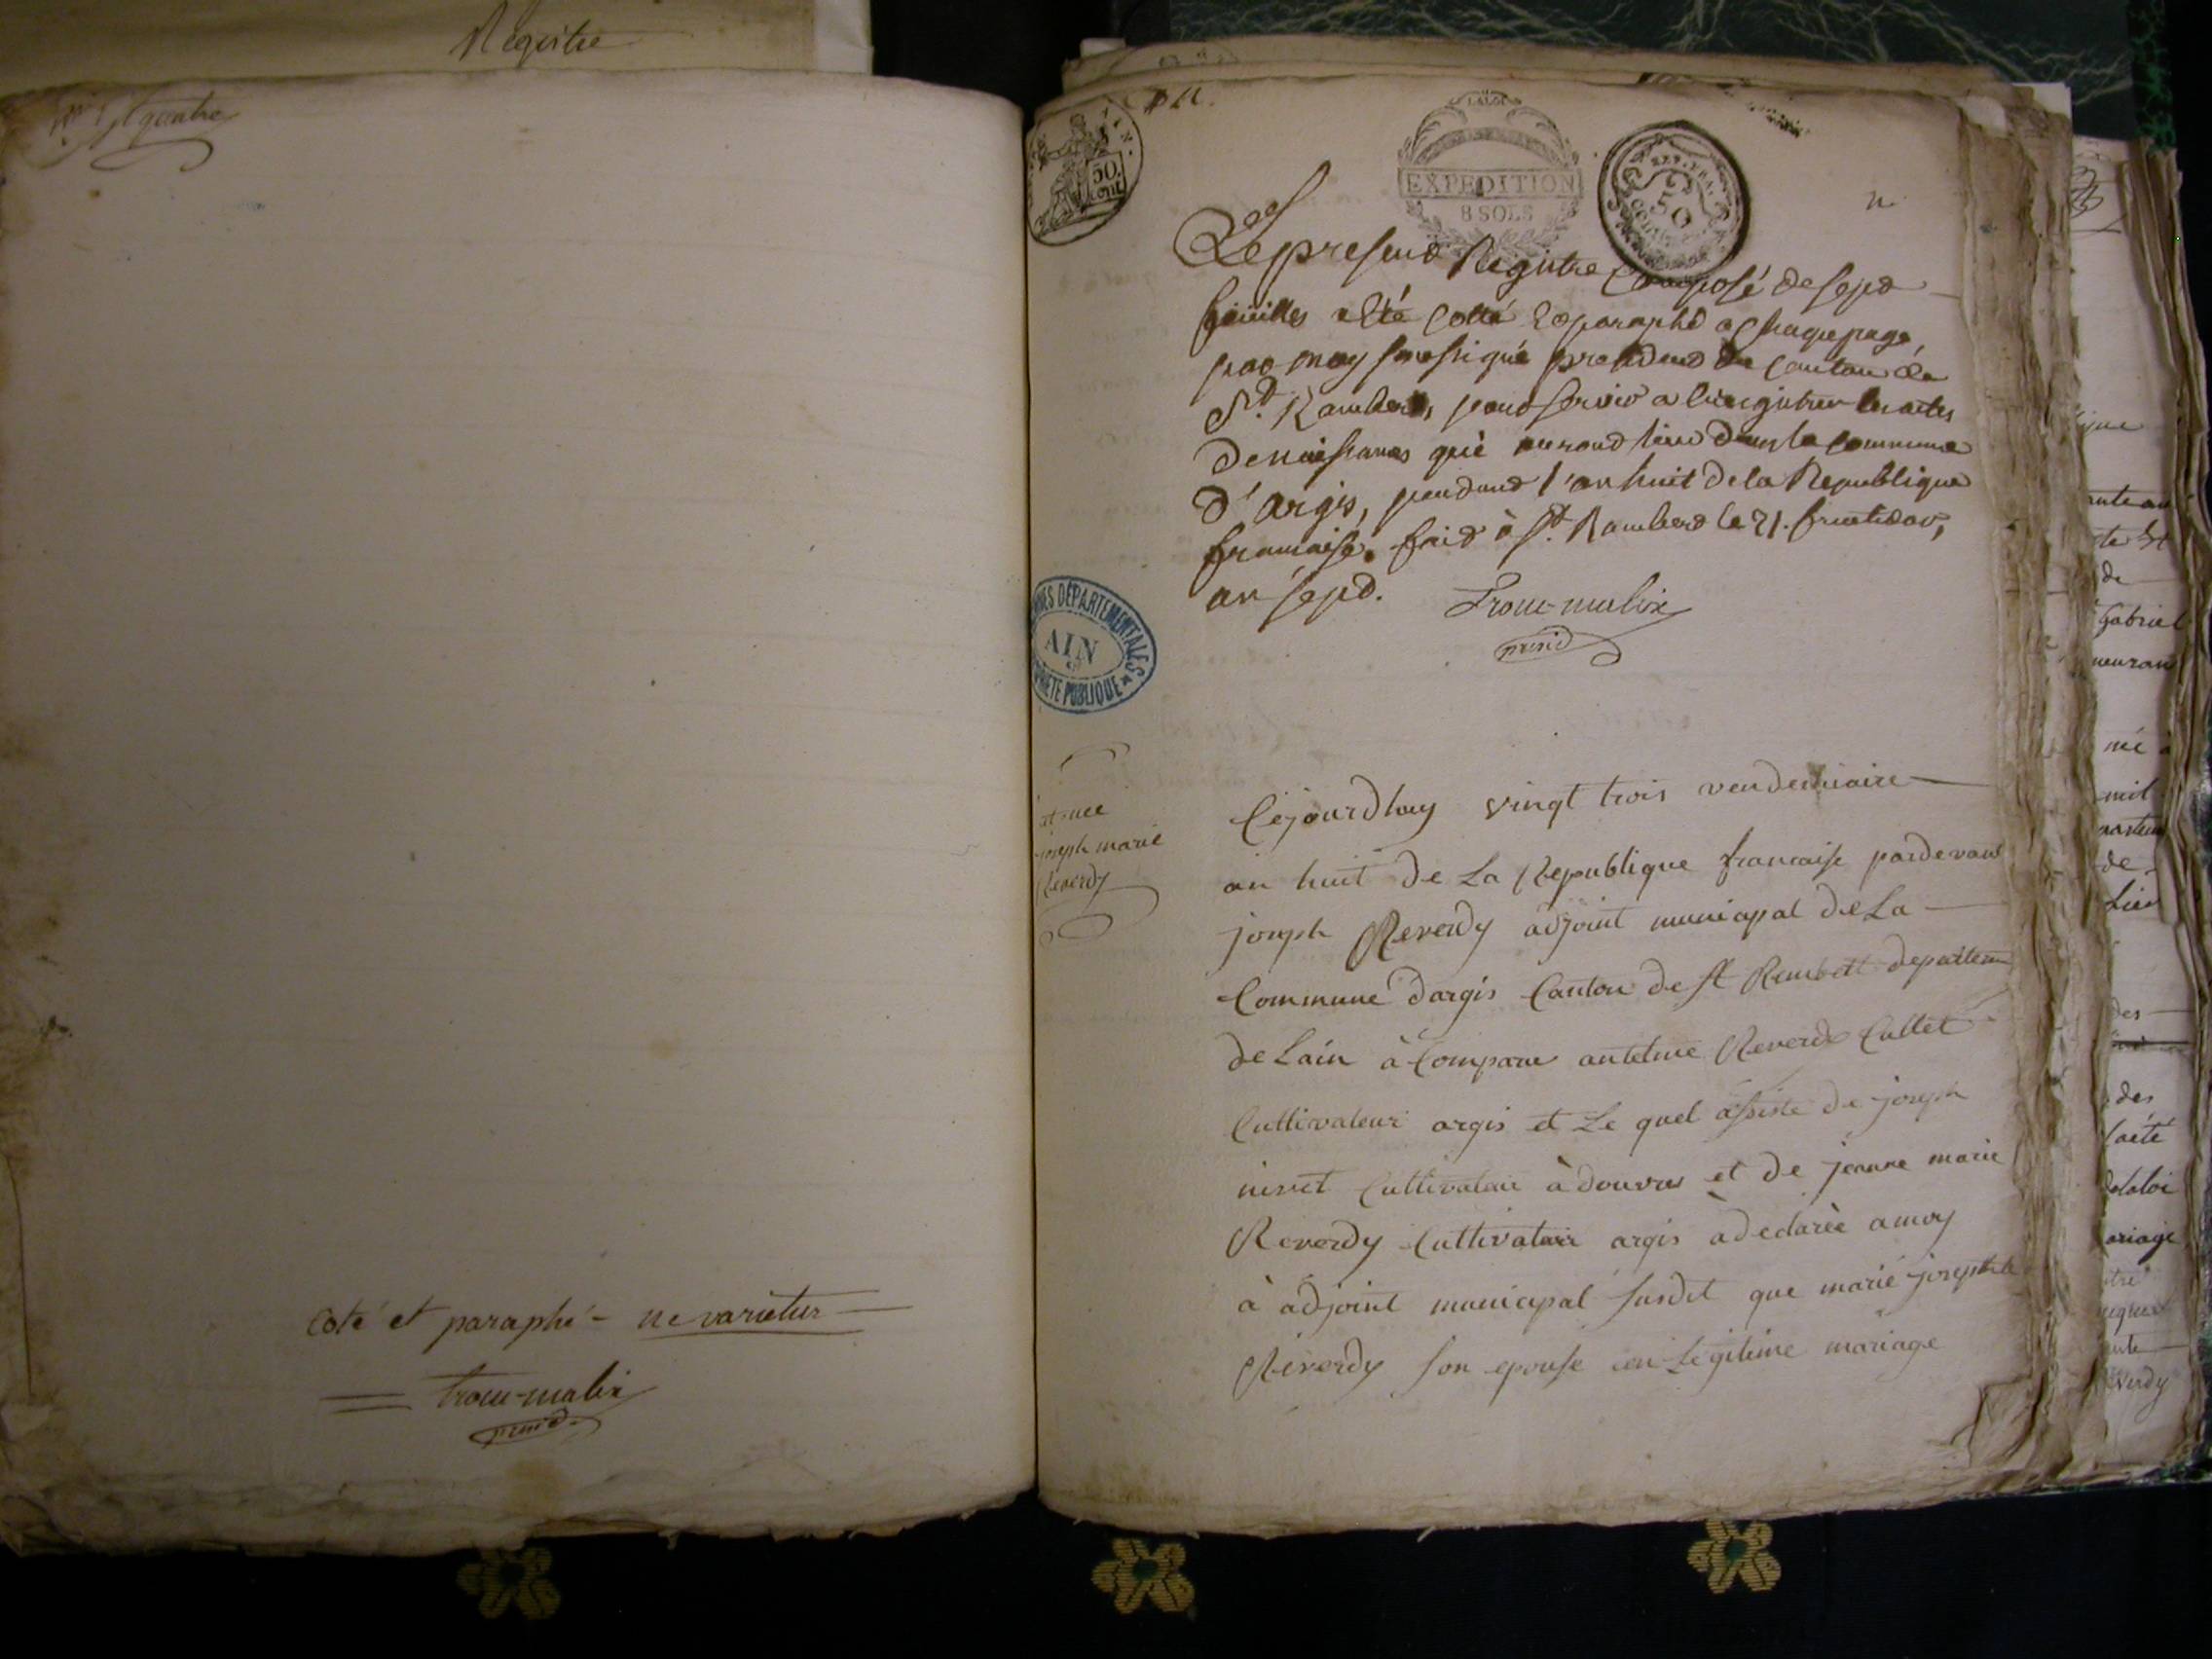 Registre
quatre
coté et paraphé - ne varietur
trou-malix
presid.
50.
cent
LA LOI
EXPEDITION
8 SOLS
REP. FRA.
50
Le present Registre Composé de sept
feüilles a Eté Cotté Et paraphé a Chaque page,
par moy soussigné president du Canton de
St. Rambert, pour servir a Enregistrer les actes
de naissances qui auront lieu dans la commune
d'argis, pendant l'an huit de la Republique
francaise, fait à St. Rambert le 21. fructidor,
an sept.
trou-malix
presid
ARCHIVES DÉPARTEMENTALES
AIN
PROPRIÉTÉ PUBLIQUE
joseph marie
Reverdy
Cejourdhuy vingt trois vendemiaire
an huit de La Republique francaise pardevant
joseph Reverdy adjoint municipal de La
Commune dargis Canton de st Rembert departem
de Lain à Comparu antelme Reverdy Cullet
Cultivateur argis et Le quel assisté de joseph
nivet Cultivateur à douvres et de jeanne marie
Reverdy Cultivatrice argis a declarèe a moy
à adjoint municipal susdit que marie josephte
Reverdy son epouse en Legitime mariage
Gabriel
né à
mil
de
des
des